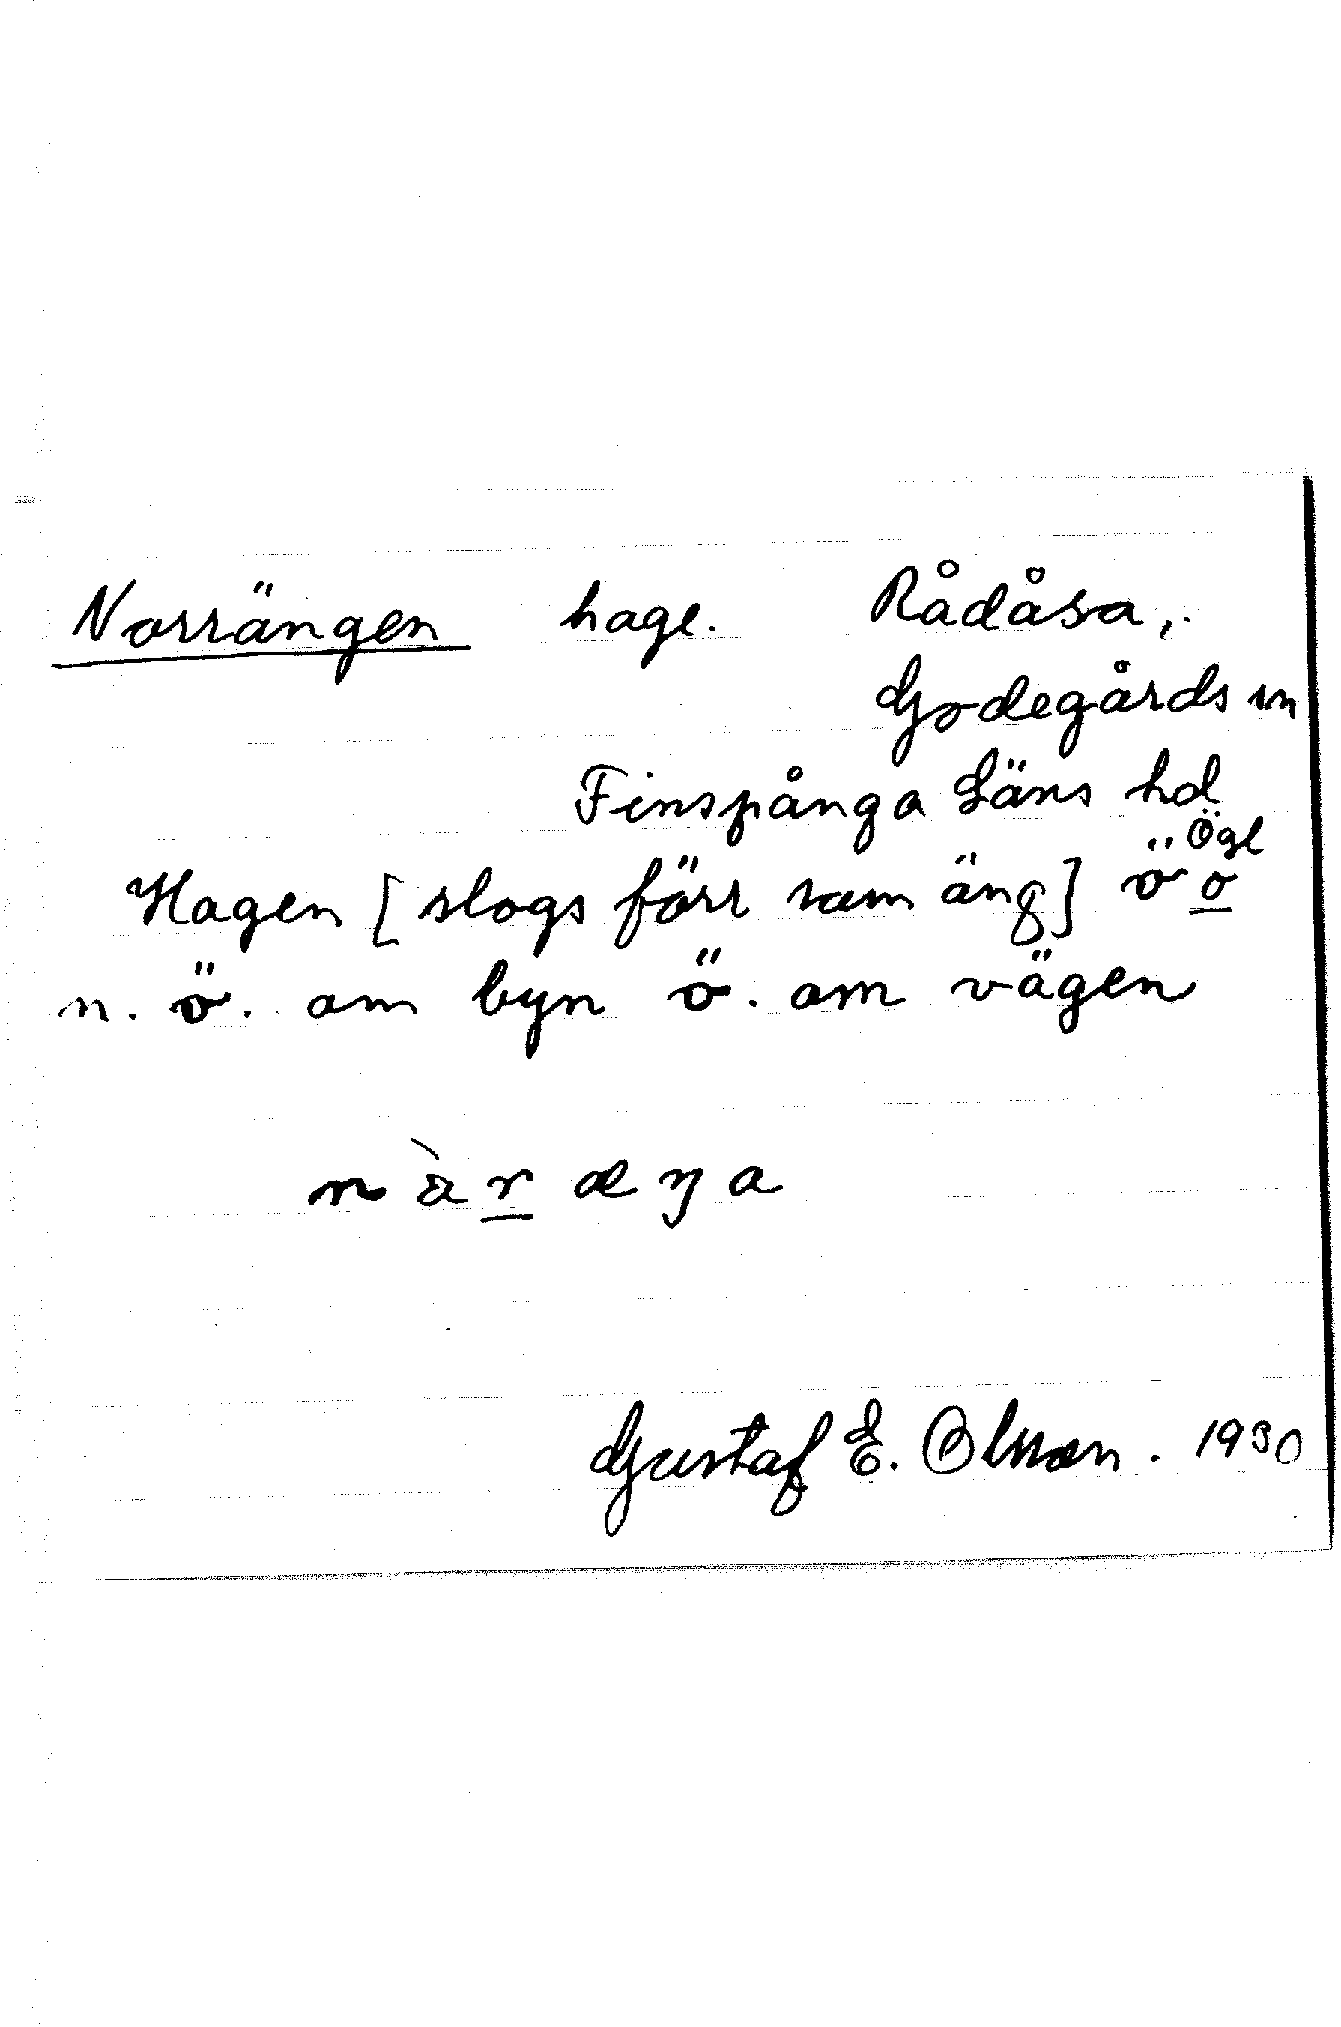 Norrängen hage. Rådåsa,.
Godegårds sn
Finspånga Läns hd
Ögl
Hagen [slogs förr som äng] ö o
n. ö. om byn ö. om vägen
nàræŋa
Gustaf E. Olsson. 1930